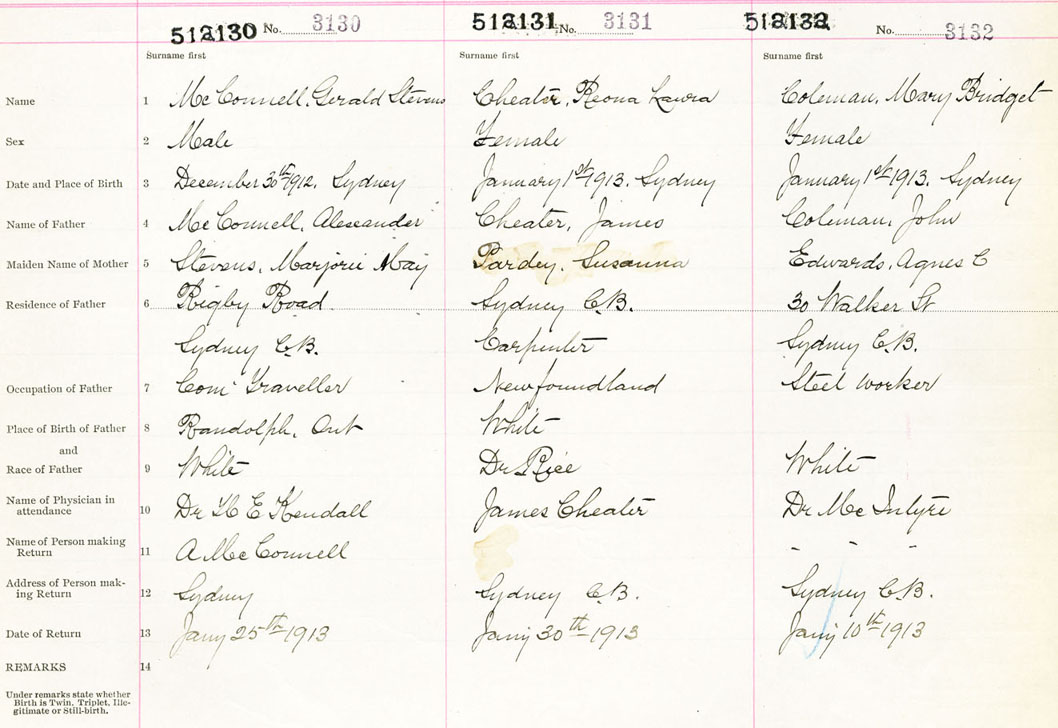 512130 No. 3130 512131 No. 3131 512132 No. 3132
Surname first Surname first Surname first
Name 1 McConnell, Gerald Stevens Cheater, Reona Laura Coleman, Mary Bridget
Sex 2 Male Female Female
Date and Place of Birth 3 December 30th 1912. Sydney January 1st 1913. Sydney January 1st 1913. Sydney
Name of Father 4 McConnell, Alexander Cheater, James Coleman, John
Maiden Name of Mother 5 Stevens, Marjorie May Pardey, Susanna Edwards, Agnes C
Residence of Father 6 Rigby Road. Sydney C.B. 30 Walker St
Sydney C.B. Carpenter Sydney C.B.
Occupation of Father 7 Com Traveller Newfoundland Steel worker
Place of Birth of Father 8 Randolph, Ont White
and
Race of Father 9 White Dr Rice White
Name of Physician in
attendance 10 Dr H E Kendall James Cheater Dr McIntyre
Name of Person making
Return 11 A McConnell - - -
Address of Person mak-
ing Return 12 Sydney Sydney C.B. Sydney C.B.
Date of Return 13 Jany 25th 1913 Jany 30th 1913 Jany 10th 1913
REMARKS 14
Under remarks state whether
Birth is Twin, Triplet, Ille-
gitimate or Still-birth.